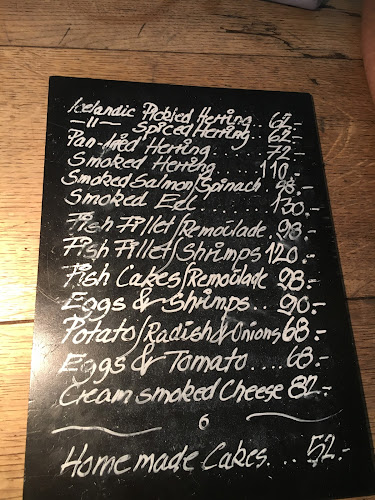 Icelandic Pickled Herring.. 62.-
—11— Spiced Herring... 62.-
Pan-fried Herring..... 72.-
Smoked Herring..... 110.-
Smoked Salmon/Spinach 98.-
Smoked Eel...... 130.-
Fish Fillet/Remoulade. 98.-
Fish Fillet/Shrimps 120.-
Fish Cakes/Remoulade 98.-
Eggs & Shrimps... 90.-
Potato/Radish & Onions 68.-
Eggs & Tomato.... 68.-
Cream smoked Cheese 82.-
6
Home made Cakes... 52.-